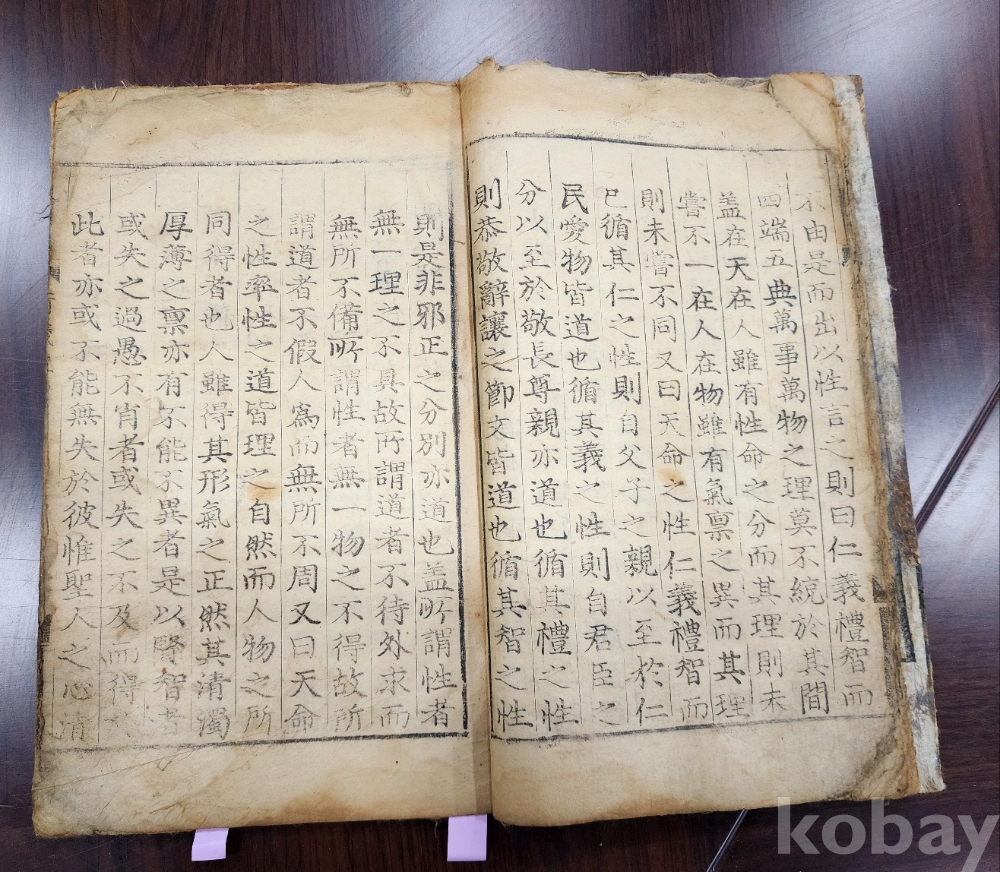 不由是而出以性言之則曰仁義禮智而
四端五典萬事萬物之理莫不統於其間
盖在天在人雖有性命之分而其理則未
嘗不一在人在物雖有氣禀之異而其理
則未嘗不同又曰天命之性仁義禮智而
已循其仁之性則自父子之親以至於仁
民愛物皆道也循其義之性則自君臣之
分以至於敬長尊親亦道也循其禮之性
則恭敬辭讓之節文皆道也循其智之性
則是非邪正之分別亦道也盖所謂性者
無一理之不具故所謂道者不待外求而
無所不備所謂性者無一物之不得故所
謂道者不假人爲而無所不周又曰天命
之性率性之道皆理之自然而人物之所
同得者也人雖得其形氣之正然其清濁
厚薄之禀亦有不能不異者是以賢智者
或失之過愚不肖者或失之不及而得
此者亦或不能無失於彼惟聖人之心清
kobay